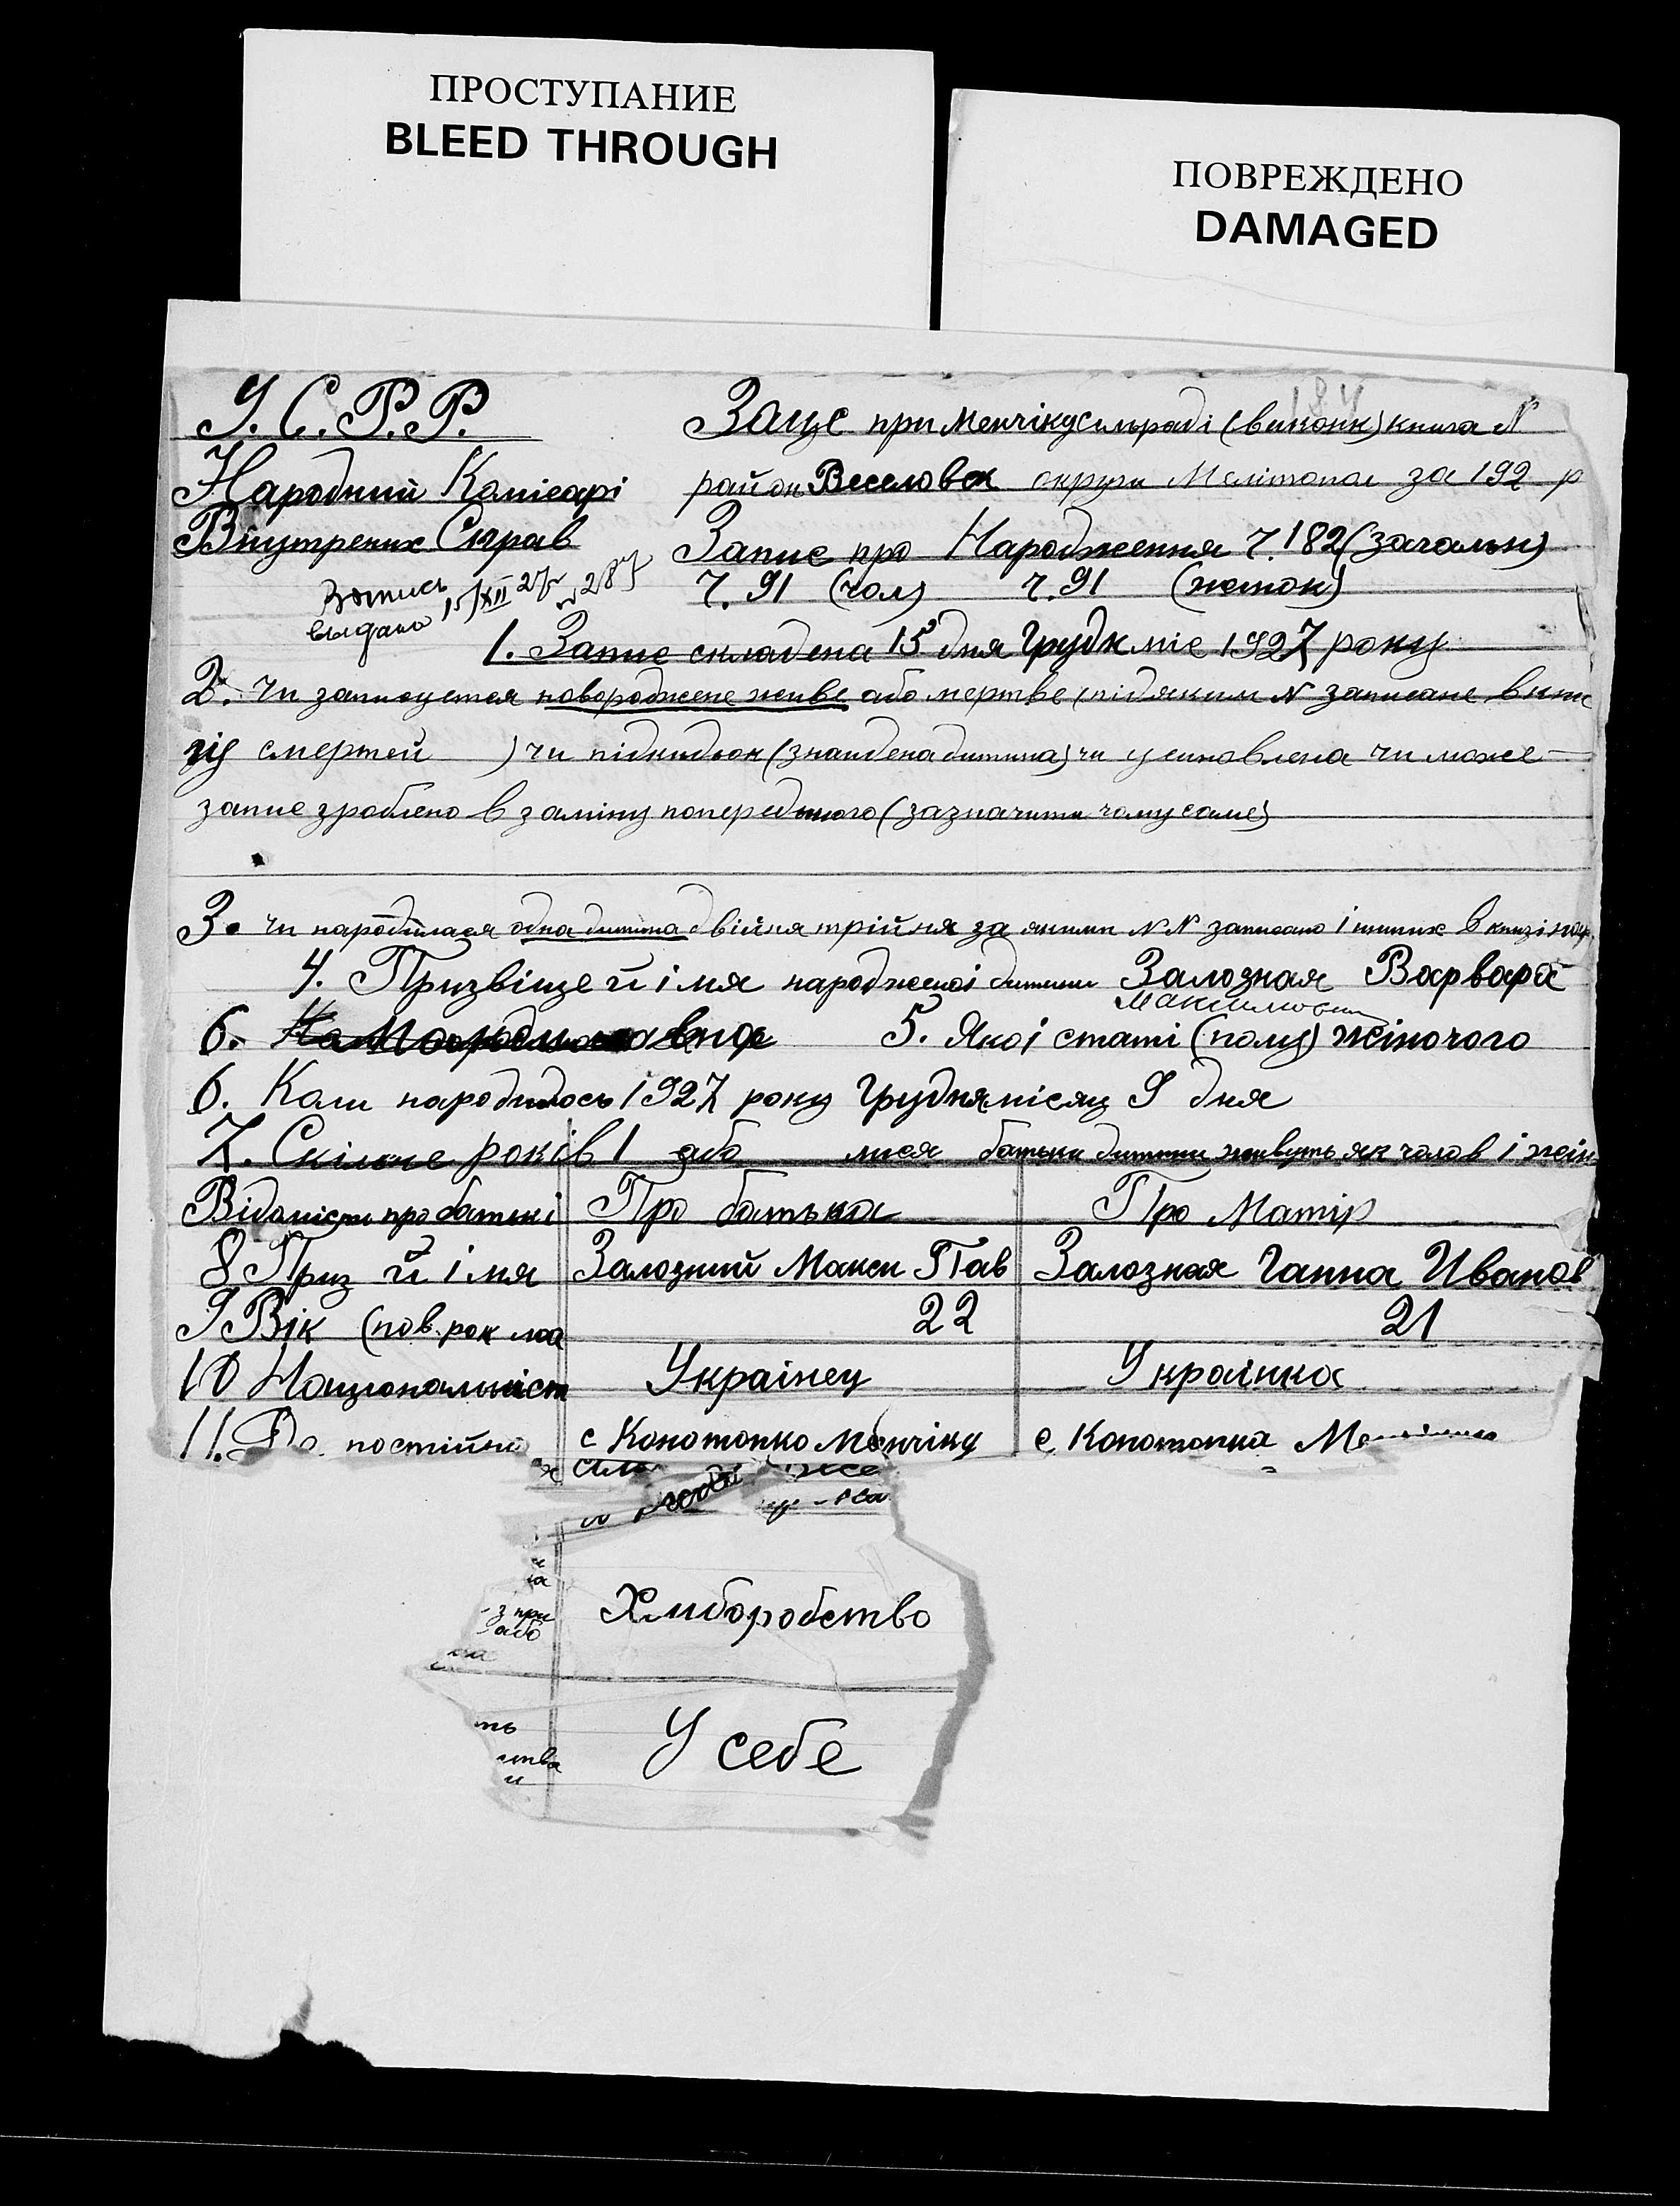 ПРОСТУПАНИЕ
BLEED THROUGH
ПОВРЕЖДЕНО
DAMAGED
184
У. С. Р. Р.
Загс при Менчікусільраді (виконк) книга №
Народний Комісарі
район Веселовск округи Мелітопол за 192 р
Внутрених Справ
Запис про Народження Ч. 182 (загальн)
Ч. 91 (чол) ч. 91 (жинок)
Вотпись
выдано 15/XII 27г № 287
1. Запис складена 15 дня Грудн міс 1927 року
2. Чи записуется новороджене живе або мертве (під яким № записане в кни
гу смертей ) чи підкидьок (знаидена дитина) чи усиновлена чи може
запис зроблено в заміну попереднього (зазначити чому саме)
3. чи народилася одна дитина двійня трійня за якими NN записано інших в книзі нар.
4. Призвіще й імя народженоі дитини Залозная Варвара
Максимовна
6. 5. Якоі статі (полу) жіночого
6. Коли народилось 1927 року Грудня місяц 9 дня
7. Скільке років 1 або міся батьки дитини живуть як чолов і жін
Відомісти про батькі Про батька Про Матір
8 Приз й імя Залозний Макси Пав Залозная Ганна Иванов
9 Вік (пов. рок ма 22 21
10 Національніст Украінец Украінка
11. По постійно с Конотопко Менчіку с. Конотопка
з при
або
Хлиборобство
У себе